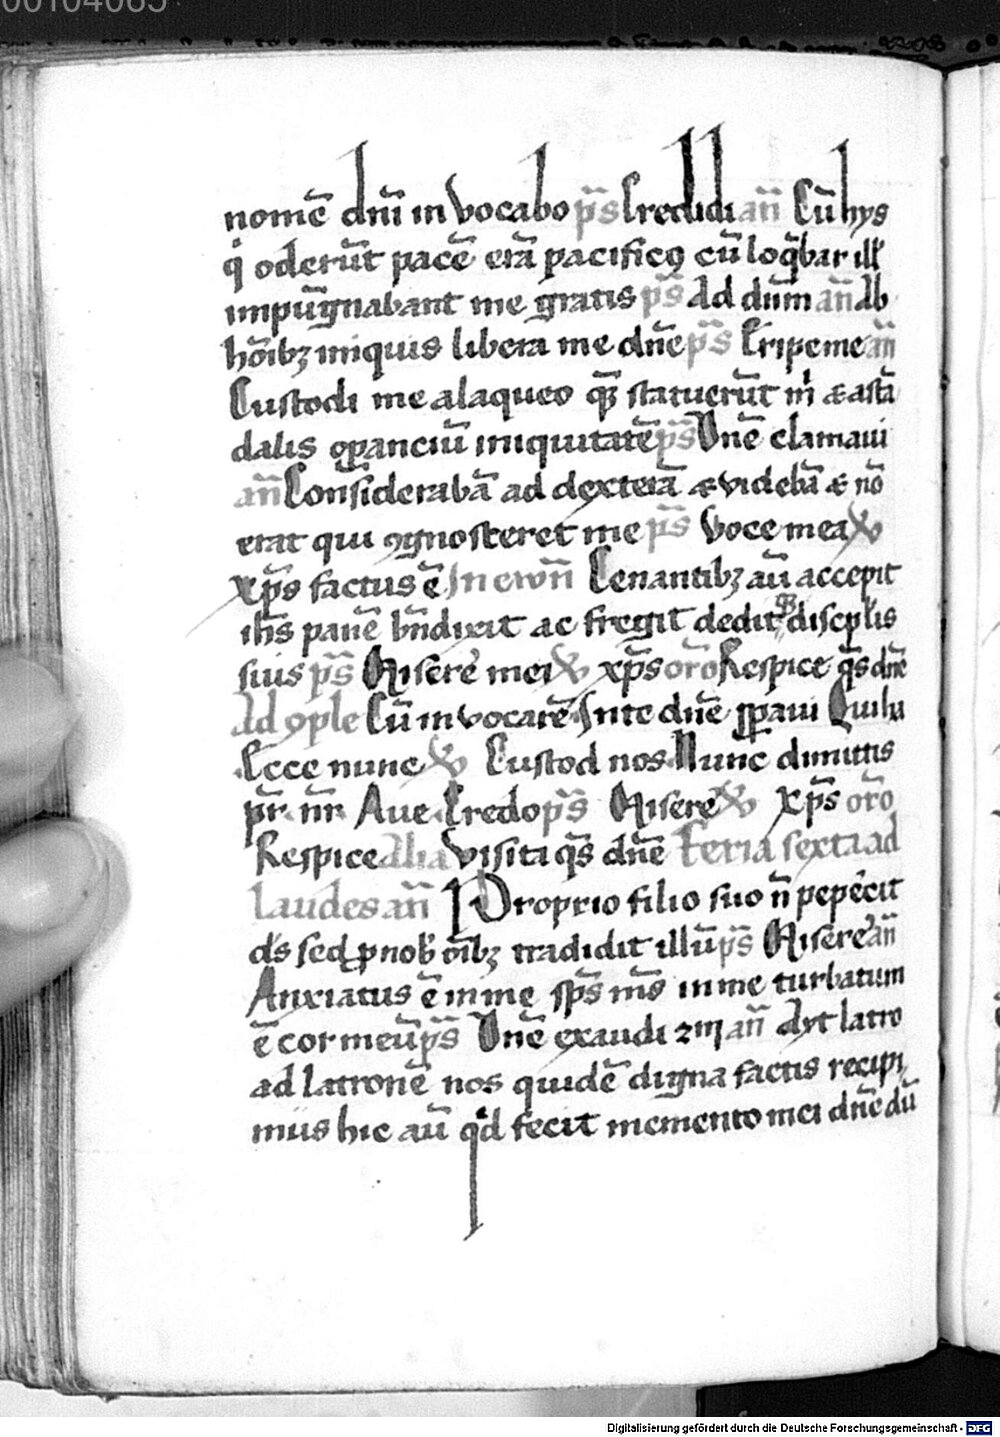 00104065
nomē dnī in vocabo ps̄ Credidi an̄ Cū hys
q̇ oderūt pacē erā pacificꝯ cū loq̄bar ill'
impūgnabant me gratis ps̄ Ad dnm̄ an̄ Ab
hōībꝫ iniquis libera me dnē ps̄ Eripe me an̄
Custodi me a laqueo qꝫ̄ statuerūt m̍ & a scā
dalis opanciū iniquitatē ps̄ Dnē clamaui
an̄ Considerabā ad dexterā & videbā & nō
erat qui ꝯgnosceret me ps̄ Voce mea
xp̄s factus ē In ewn̄ Cenantibꝫ aū accepit
ih̄s panē bn̄dixit ac fregit dedit qꝫ discplīs
suis ps̄ Miserē mei xp̄s orō Respice qs̄ dnē
Ad ꝯple Cū in vocarē In te dnē sꝑaui Qui hā
Ecce nunc Custod nos Nunc dimittis
pr̄ nr̄ Aue Credo ps̄ Miserē xp̄s orō
Respice Alia Visita qs̄ dnē Feria sexta ad
laudes an̄ Proprio filio suo n̄ pepercit
ds̄ sed ꝓ nob̄ oībꝫ tradidit illū ps̄ Miserē an̄
Anxiatus ē in me sps̄ ms̄ in me turbatum
ē cor meū ps̄ Dnē exaudi 2m an̄ Ayt latro
ad latronē nos quidē digna factis recipi
mus hic aū qd fecit memento mei dnē dū
Digitalisierung gefördert durch die Deutsche Forschungsgemeinschaft - DFG